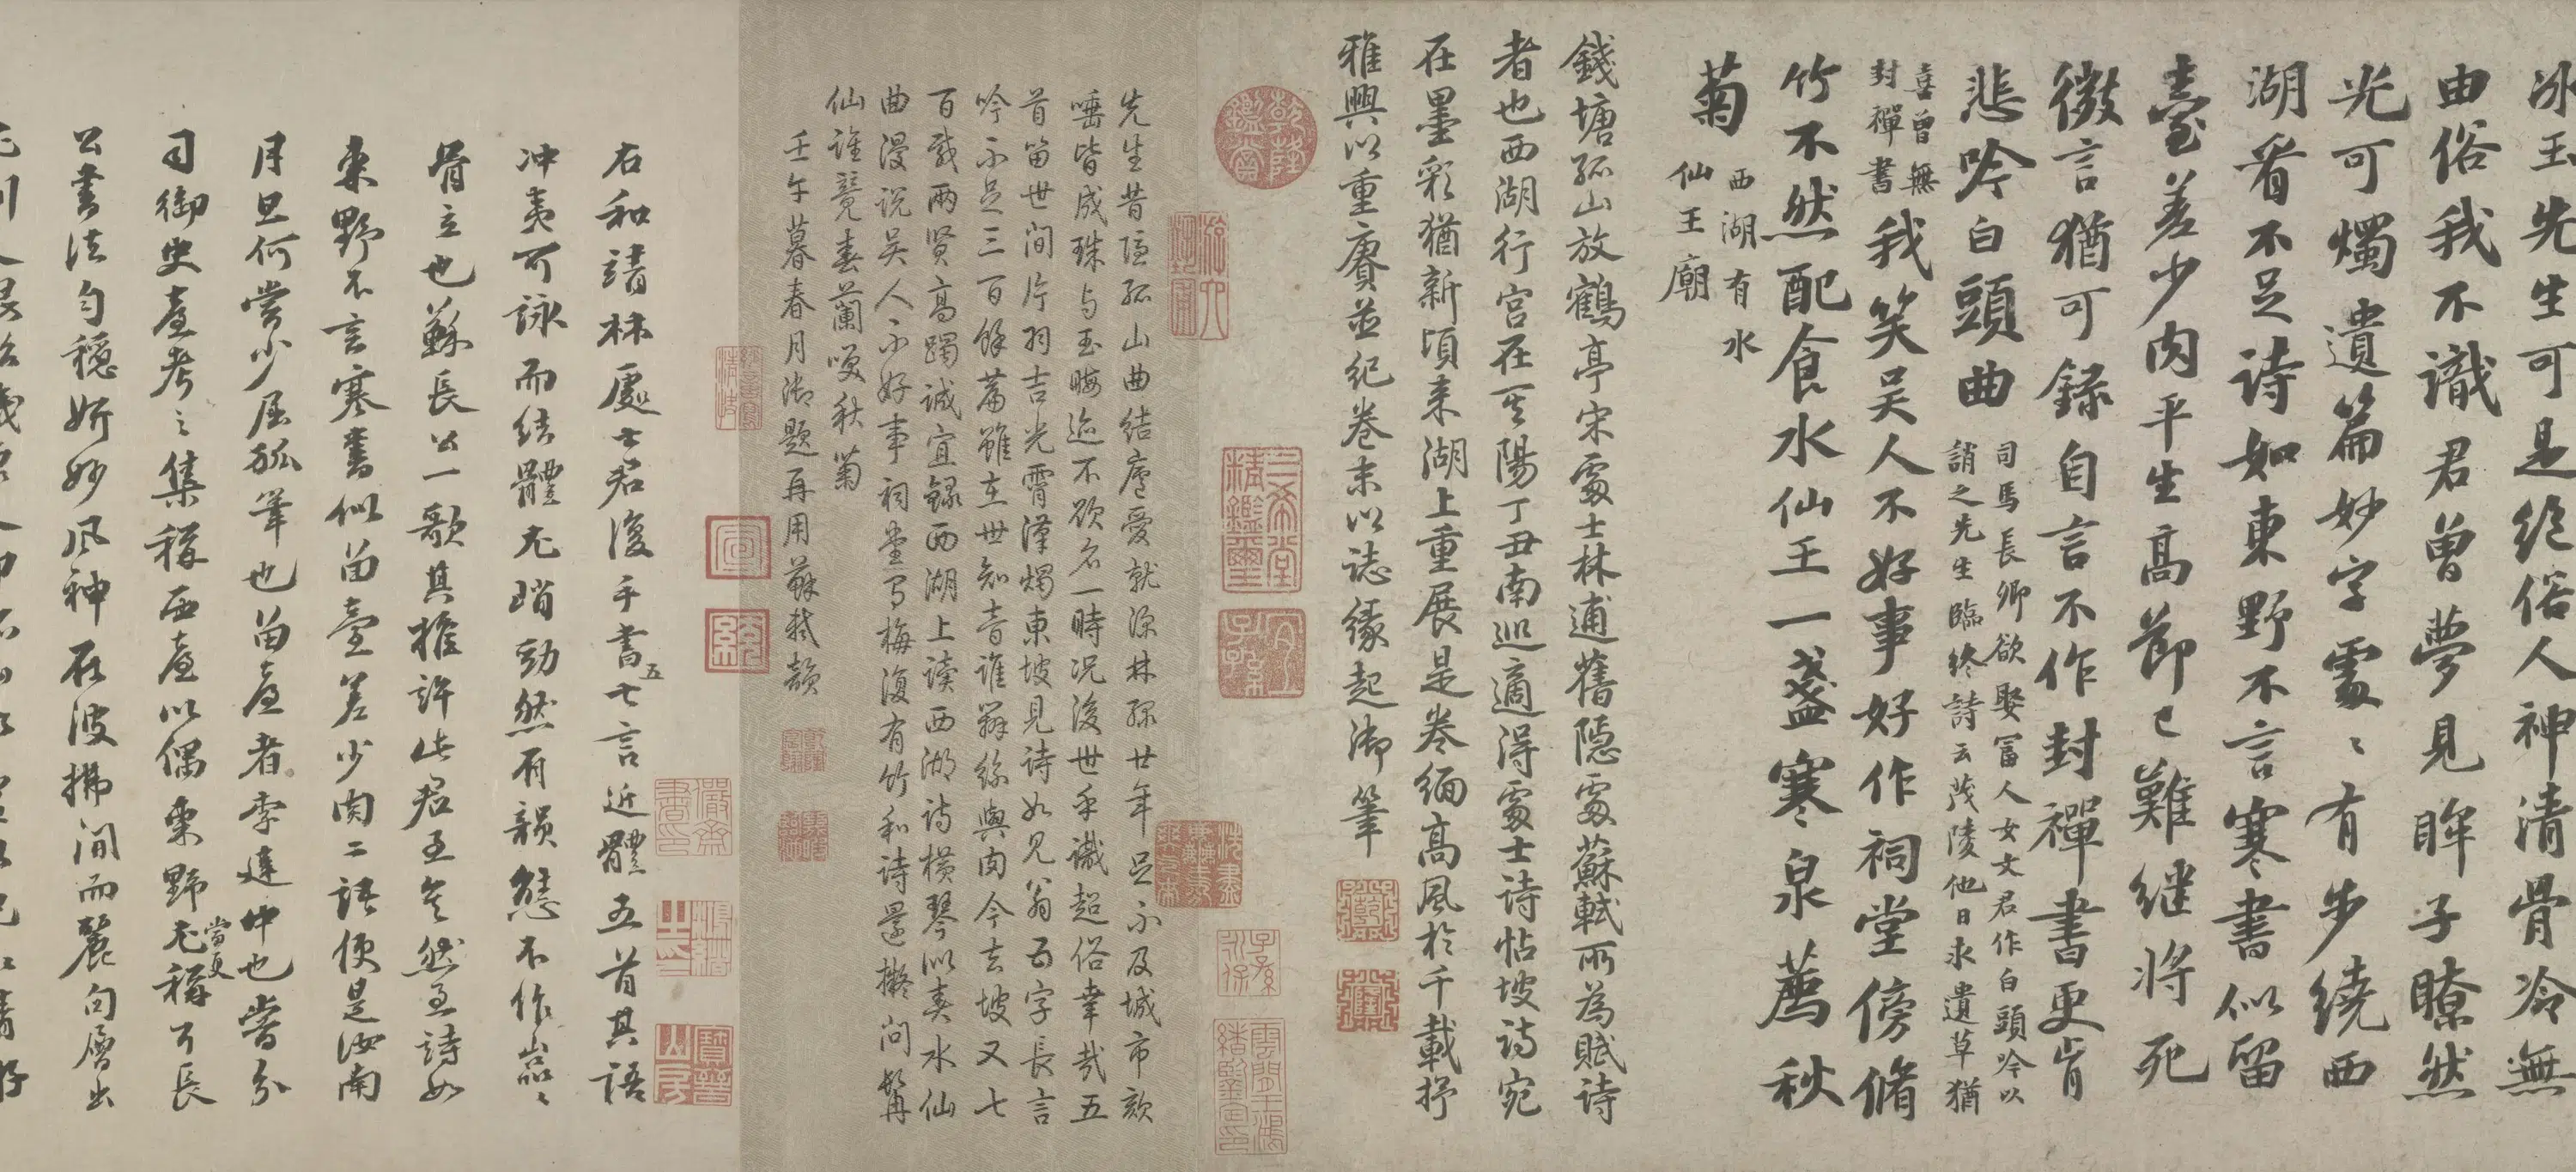 冰玉先生可是絕俗人神清骨冷無
由俗我不識君曾夢見眸子瞭然
光可燭遺篇妙字處〻有步繞西
湖看不足詩如東野不言寒書似留
臺差少肉平生高節已難繼將死
微言猶可錄自言不作封禪書更肯
悲吟白頭曲
司馬長卿欲娶富人女文君作白頭吟以
誚之先生臨終詩云茂陵他日求遺草猶
喜曾無
封禪書
我笑吳人不好事好作祠堂傍脩
竹不然配食水仙王一盞寒泉薦秋
菊
西湖有水
仙王廟
錢塘孤山放鶴亭宋處士林逋舊隱處蘇軾所為賦詩
者也西湖行宮在其陽丁丑南巡適得處士詩帖坡詩宛
在墨彩猶新頃来湖上重展是卷緬高風於千載抒
雅興以重賡並紀卷末以誌緣起御筆
乾隆鑑賞
三希堂精鑑璽
宜子孫
先生昔隱孤山曲結廬愛就深林綠廿年足不及城市欬
唾皆成珠与玉晦迹不欲名一時况後世乎識超俗幸哉五
首留世間片羽吉光霄漢燭東坡見詩如見翁百字長言
吟不足三百餘篇雖在世知音誰辨絲與肉今去坡又七
百載兩賢高躅誠宜錄西湖上讀西湖詩橫琴以奏水仙
曲漫説吳人不好事祠堂寫梅復有竹和詩還擬問髯
仙誰競春蘭嗅秋菊
壬午暮春月御題再用蘇軾韻
右和靖林處士君復手書五七言近體五首其語
冲夷可詠而結體尤峭勁然有韻態不作嵓〻
骨立也蘇長公一歌其推許此君至矣然至詩如
東野不言寒書似留臺差少肉二語便是汝南
月旦何嘗少屈狐筆也留臺者李建中也嘗分
司御史臺考之集稱西臺以偶東野尤當更稱可長
公書法勻穩妍妙風神在波拂間而麗句層出